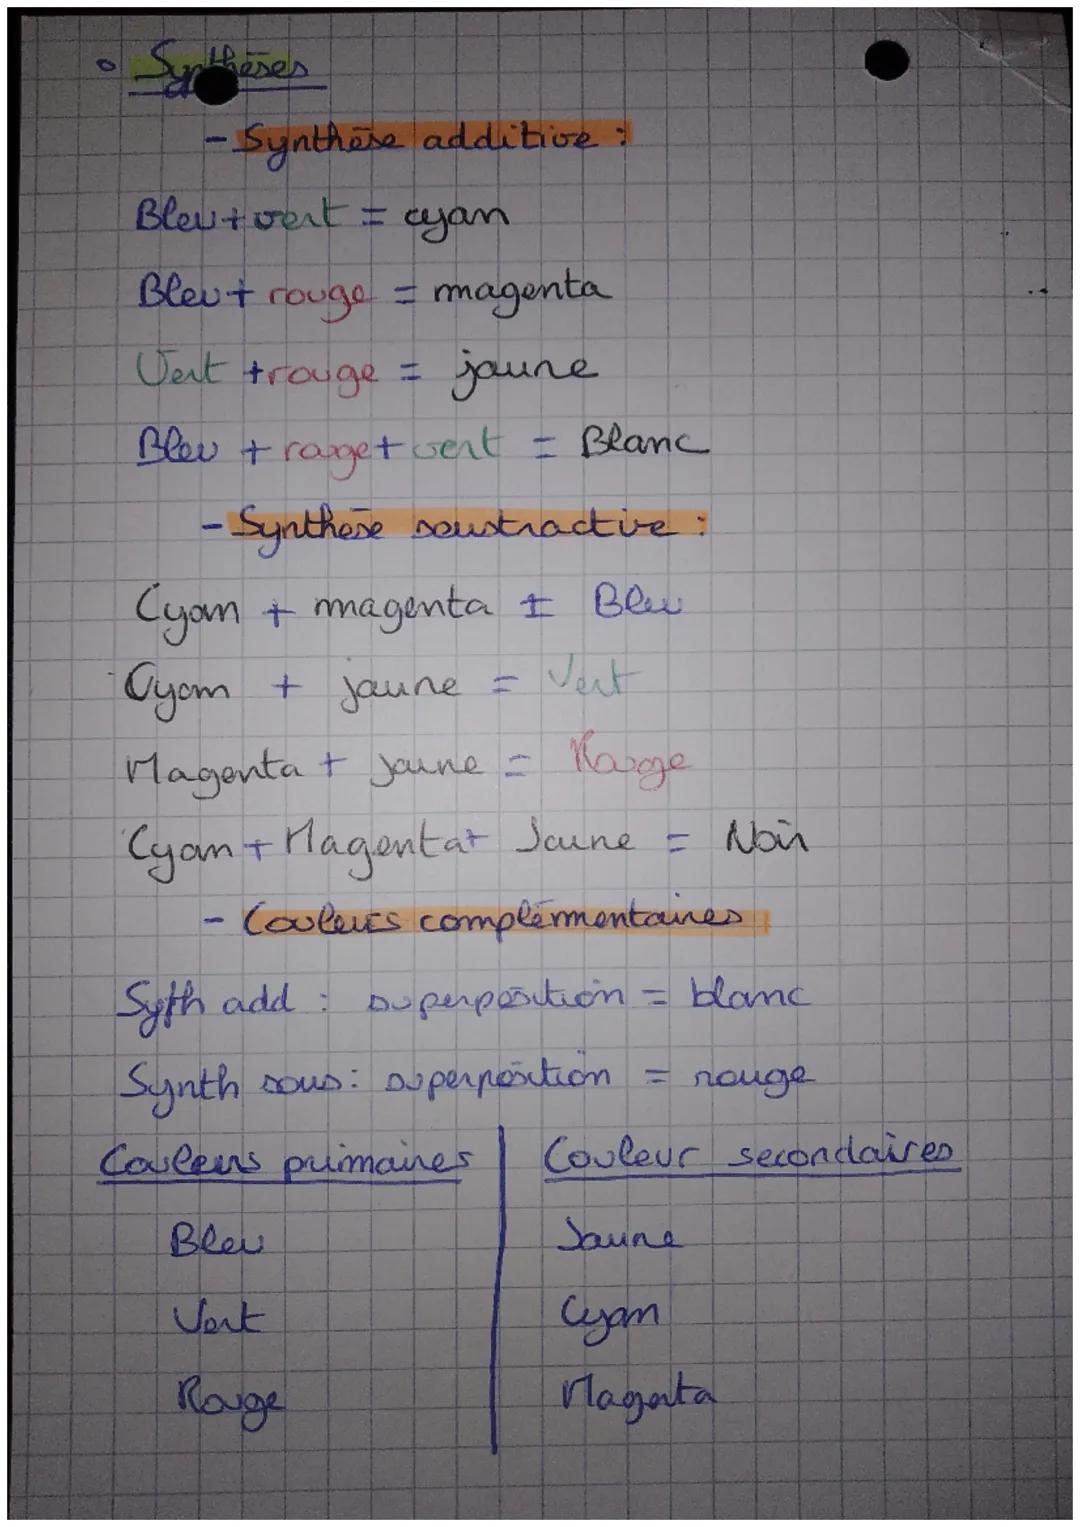 Synthèses
- Synthèse additive :
Bleu + vert = cyan
Bleu + rouge = magenta
Vert + rouge = jaune
Bleu + rouge + vert = Blanc
- Synthèse soustractive :
Cyan + magenta = Bleu
Cyan + jaune = Vert
Magenta + jaune = Rouge
Cyan + Magenta + Jaune = Noir
- Couleurs complémmentaires
Syth add : superposition = blanc
Synth sous : superposition = rouge
Couleurs primaires | Couleur secondaires
Bleu | Jaune
Vert | Cyan
Rouge | Magenta